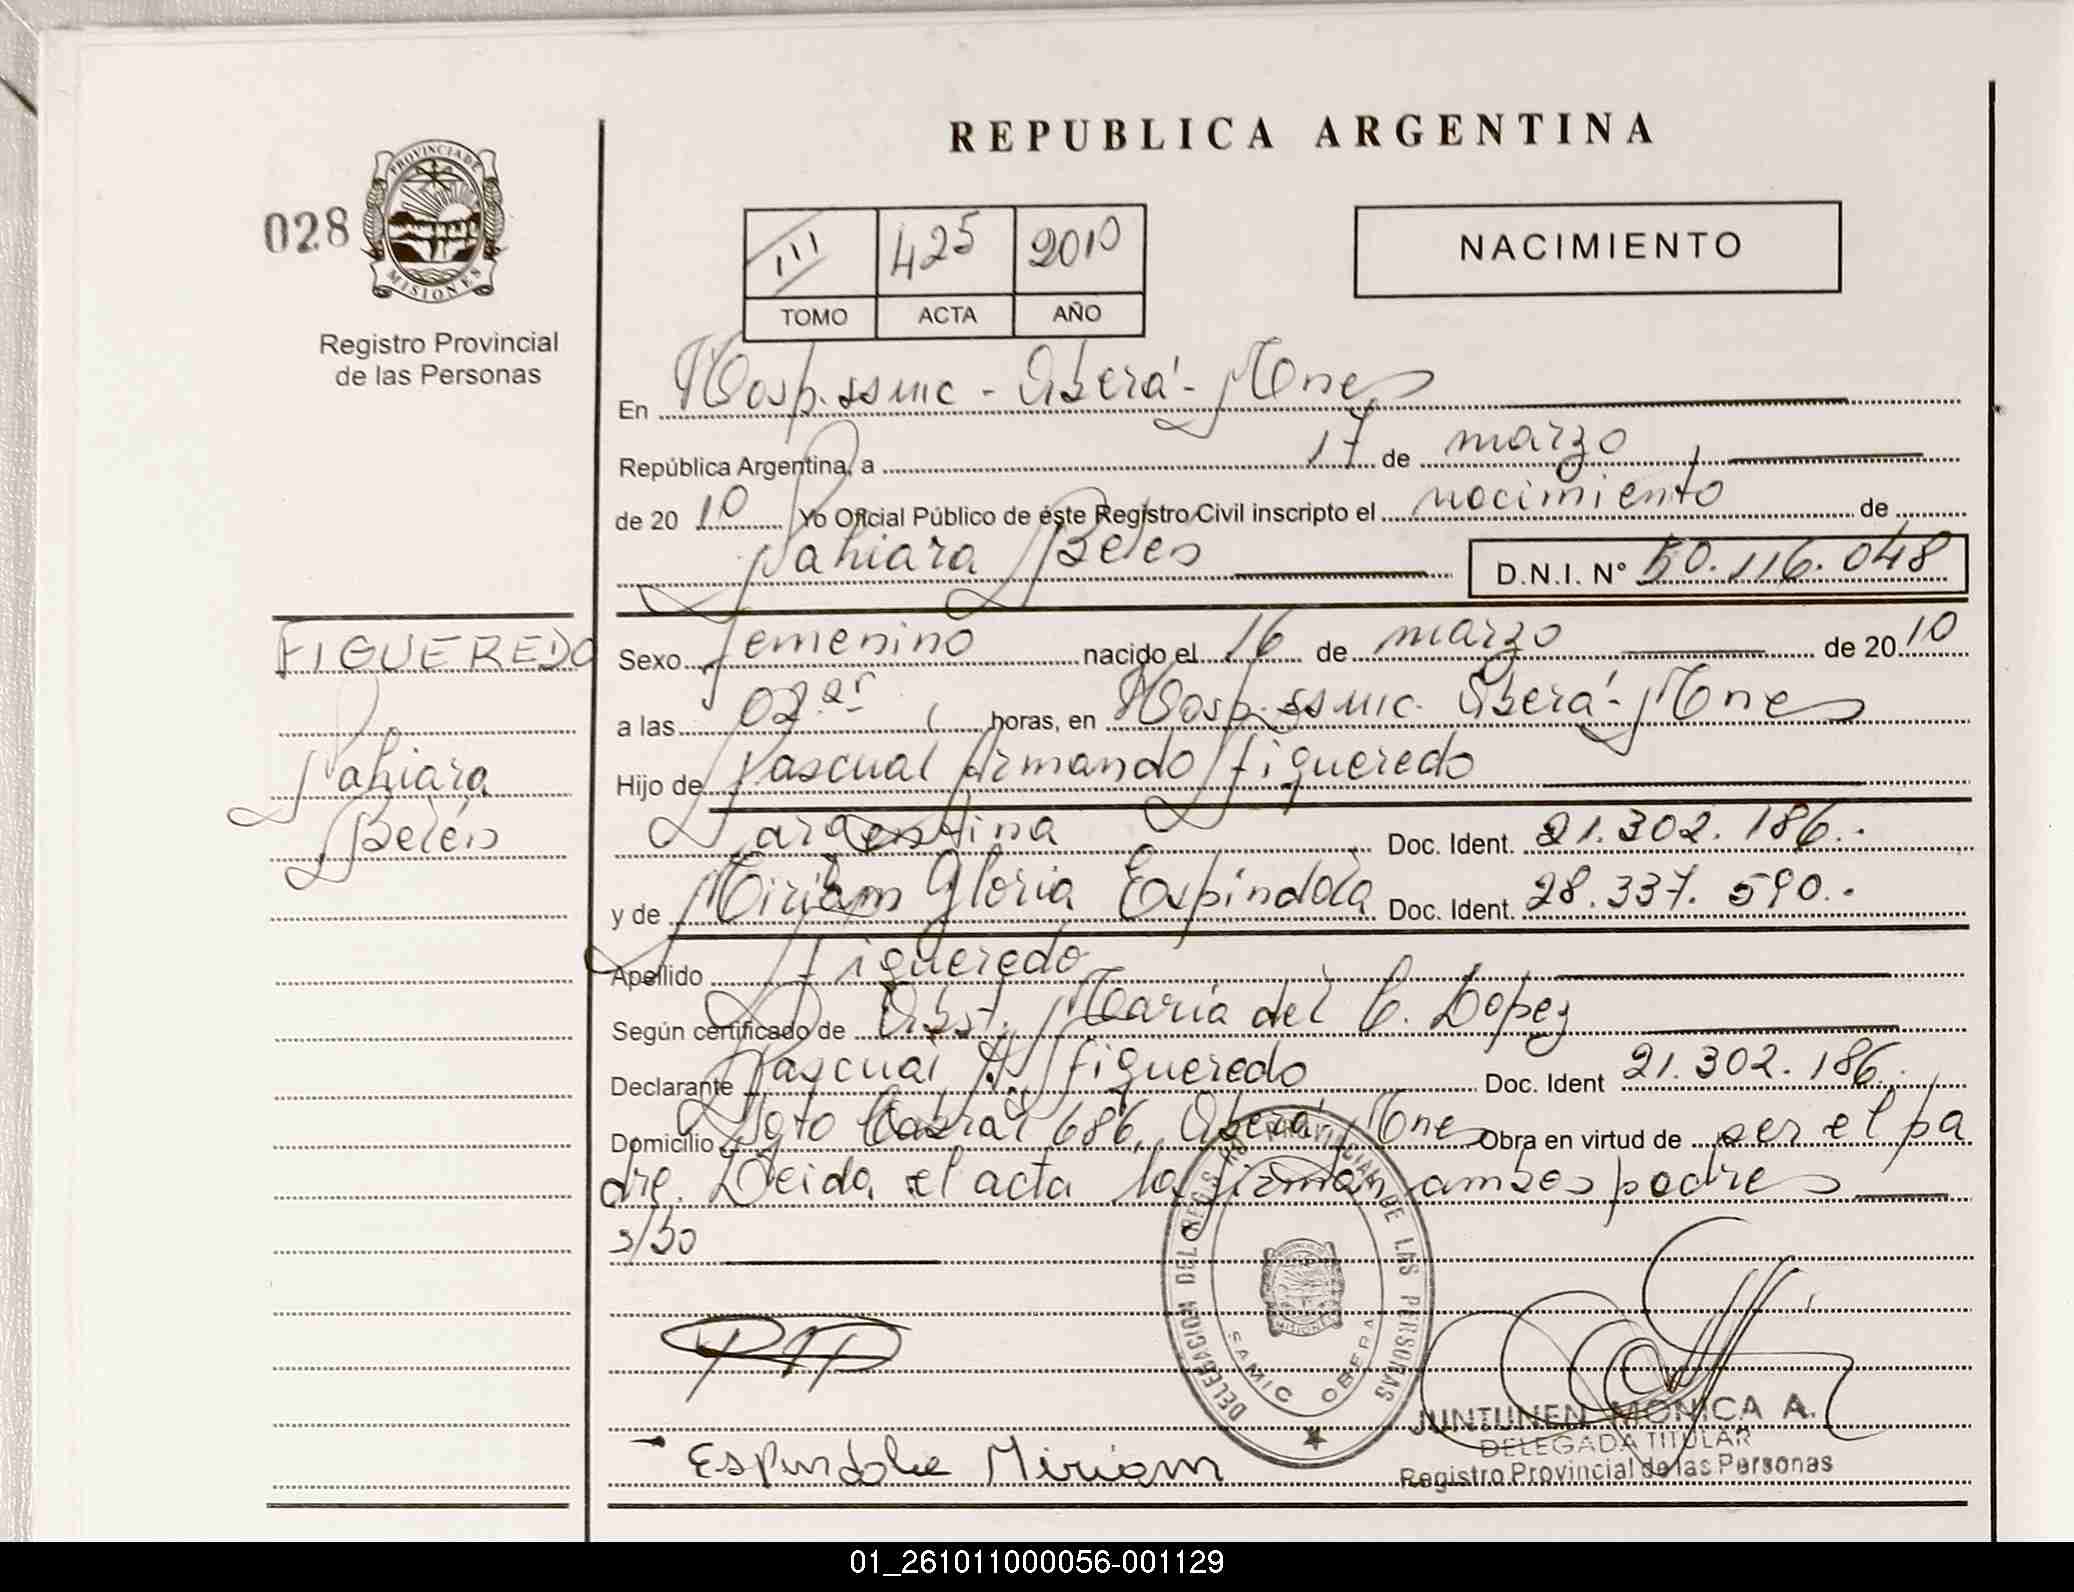 REPUBLICA ARGENTINA
028
PROVINCIA DE
MISIONES
Registro Provincial
de las Personas
III 425 2010
TOMO ACTA AÑO
NACIMIENTO
En Hosp. ssmic - Oberá - Mnes
República Argentina, a 17 de marzo
de 2010 Yo Oficial Público de éste Registro Civil inscripto el nacimiento de
Yahiara Belén D.N.I. Nº 50.116.048
FIGUEREDO
Yahiara
Belén
Sexo femenino nacido el 16 de marzo de 2010
a las horas, en Hosp. ssmic. Oberá - Mnes
Hijo de Pascual Armando Figueredo
argentina Doc. Ident. 21.302.186.-
y de Miriam Gloria Espindola Doc. Ident. 28.337.590.-
Apellido Figueredo
Según certificado de Obst. María del C. Lopez
Declarante Pascual A. Figueredo Doc. Ident 21.302.186.
Domicilio Sgto Cabral 686, Oberá, Mnes Obra en virtud de ser el pa
dre. Leida el acta la firman ambos padres
DELEGACIÓN DEL REGISTRO PROVINCIAL DE LAS PERSONAS
MISIONES
SAMIC OBERA
Espindola Miriam
JUNTUNEN MONICA A.
DELEGADA TITULAR
Registro Provincial de las Personas
01_261011000056-001129